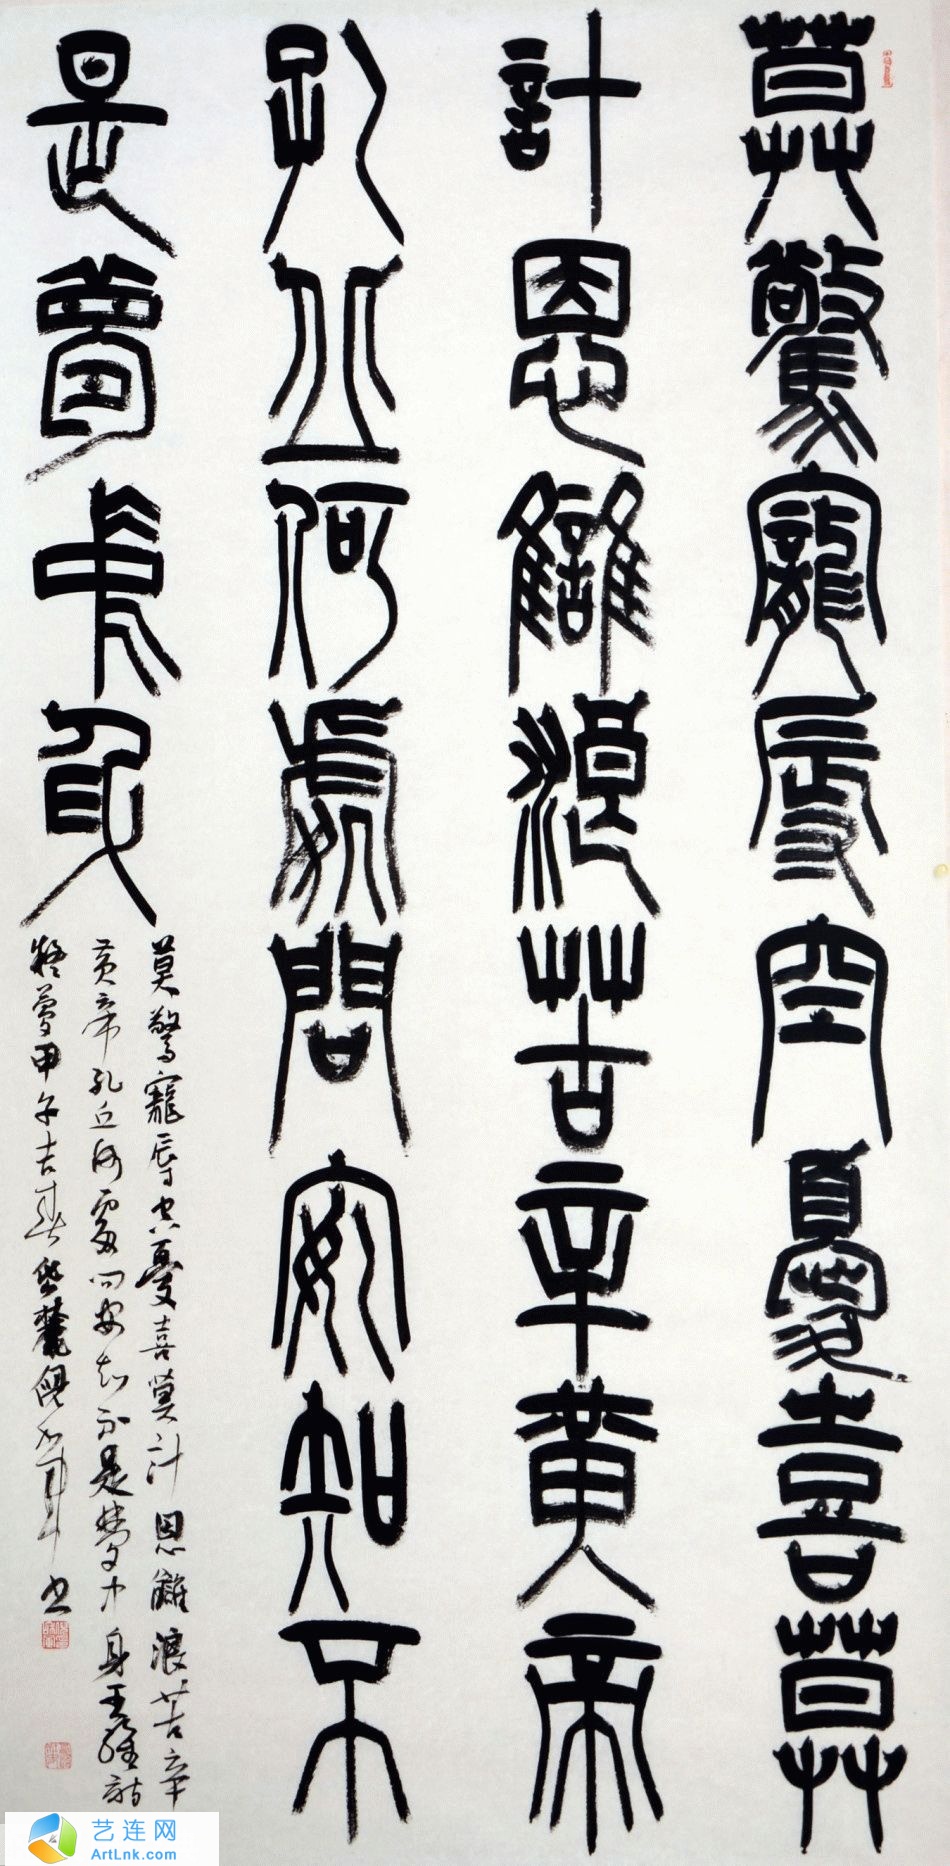 莫驚寵辱空憂喜莫
計恩讎浪苦辛黃帝
孔丘何處問安知不
是夢中身
莫驚寵辱空憂喜莫計恩讎浪苦辛
黃帝孔丘何處問安知不是夢中身王維詩
疑夢甲午吉春麓書
艺连网
ArtLnk.com